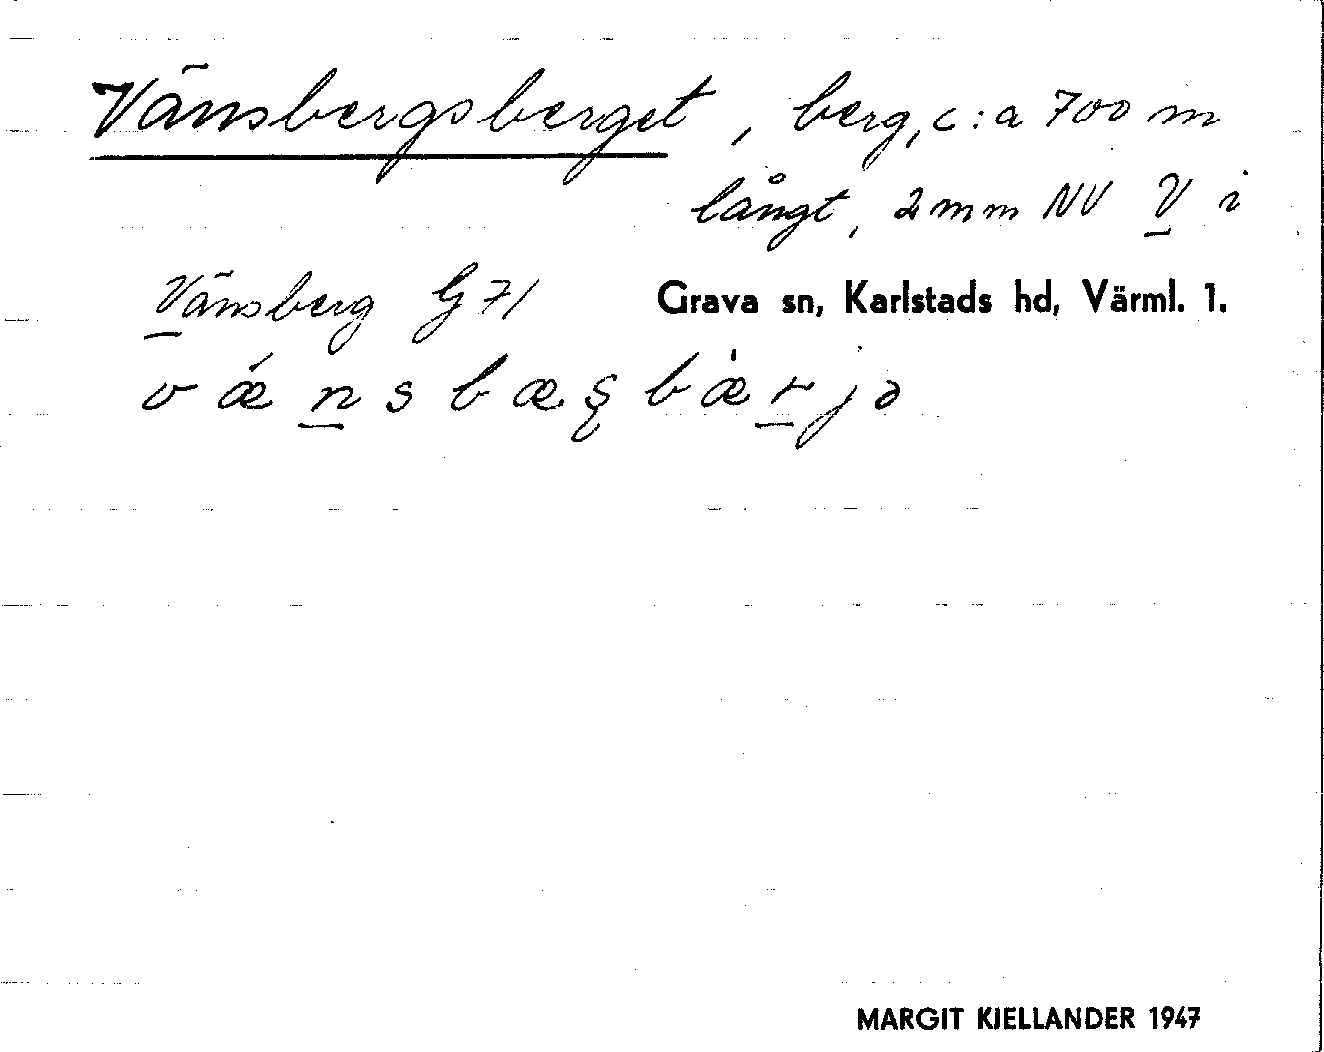 Vänsbergsberget, berg, c:a 700 m
långt, 2 mm NV V i
Vänsberg G 71 Grava sn, Karlstads hd, Värml. l.
v ǽ n s b æ ş b æ̀ r j ə
MARGIT KJELLANDER 1947